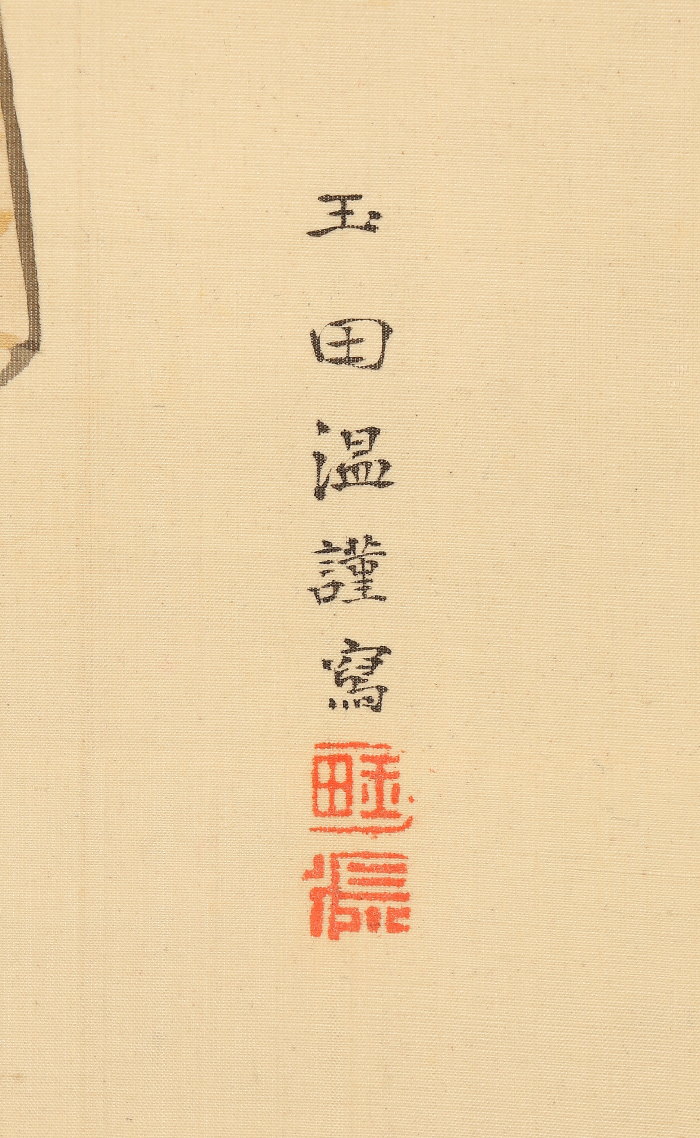 玉田温謹寫
玉田